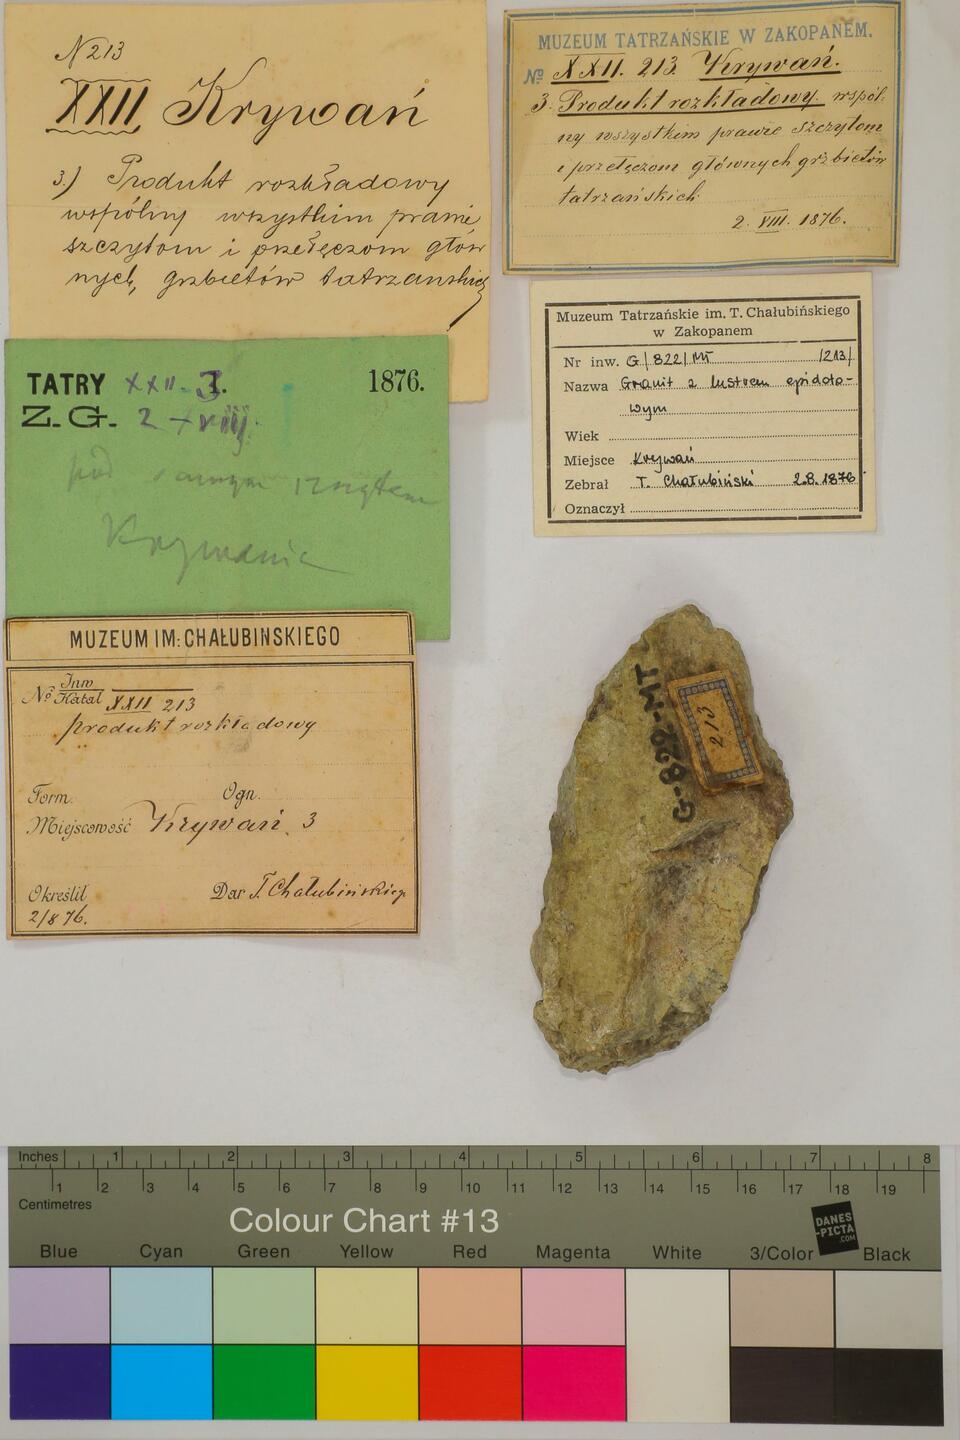 N 213
XXII Krywań
3.) Produkt rozkładowy
wspólny wszystkim prawie
szczytom i przełęczom głów
nych, grzbietów tatrzanskich
MUZEUM TATRZAŃSKIE W ZAKOPANEM.
No XXII. 213. Krywań.
3. Produkt rozkładowy wspól-
ny wszystkim prawie szczytom
i przełęczom głównych grzbietów
tatrzańskich
2. VIII. 1876.
Muzeum Tatrzańskie im. T. Chałubińskiego
w Zakopanem
Nr inw. G/822/MT /213/
Nazwa Granit z lustrem epidoto-
wym
Wiek
Miejsce Krywań
Zebrał T. Chałubiński 2.8.1876
Oznaczył
TATRY XXII. 3. 1876.
Z. G. 2 viij.
pod samym szczytem
Krywania
MUZEUM IM: CHAŁUBINSKIEGO
No Inw Katal XXII 213
produkt rozkładowy
Form. Ogn.
Miejscowość Krywań. 3
Określił Dar T. Chałubińskiego
2/8 76.
G-822-MT
213
Inches 1 2 3 4 5 6 7 8
1 2 3 4 5 6 7 8 9 10 11 12 13 14 15 16 17 18 19
Centimetres
Colour Chart #13
DANES
-PICTA
.COM
Blue Cyan Green Yellow Red Magenta White 3/Color Black